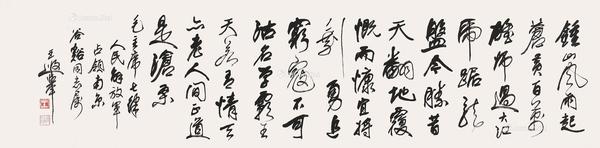 钟山风雨起
苍黄百万
雄师过大江
虎踞龙
盘今胜昔
天翻地覆
慨而慷宜将
剩勇追
穷寇不可
沽名学霸王
天若有情天
亦老人间正道
是沧桑
毛主席七律
人民解放军
占领南京
同志属
王遐举